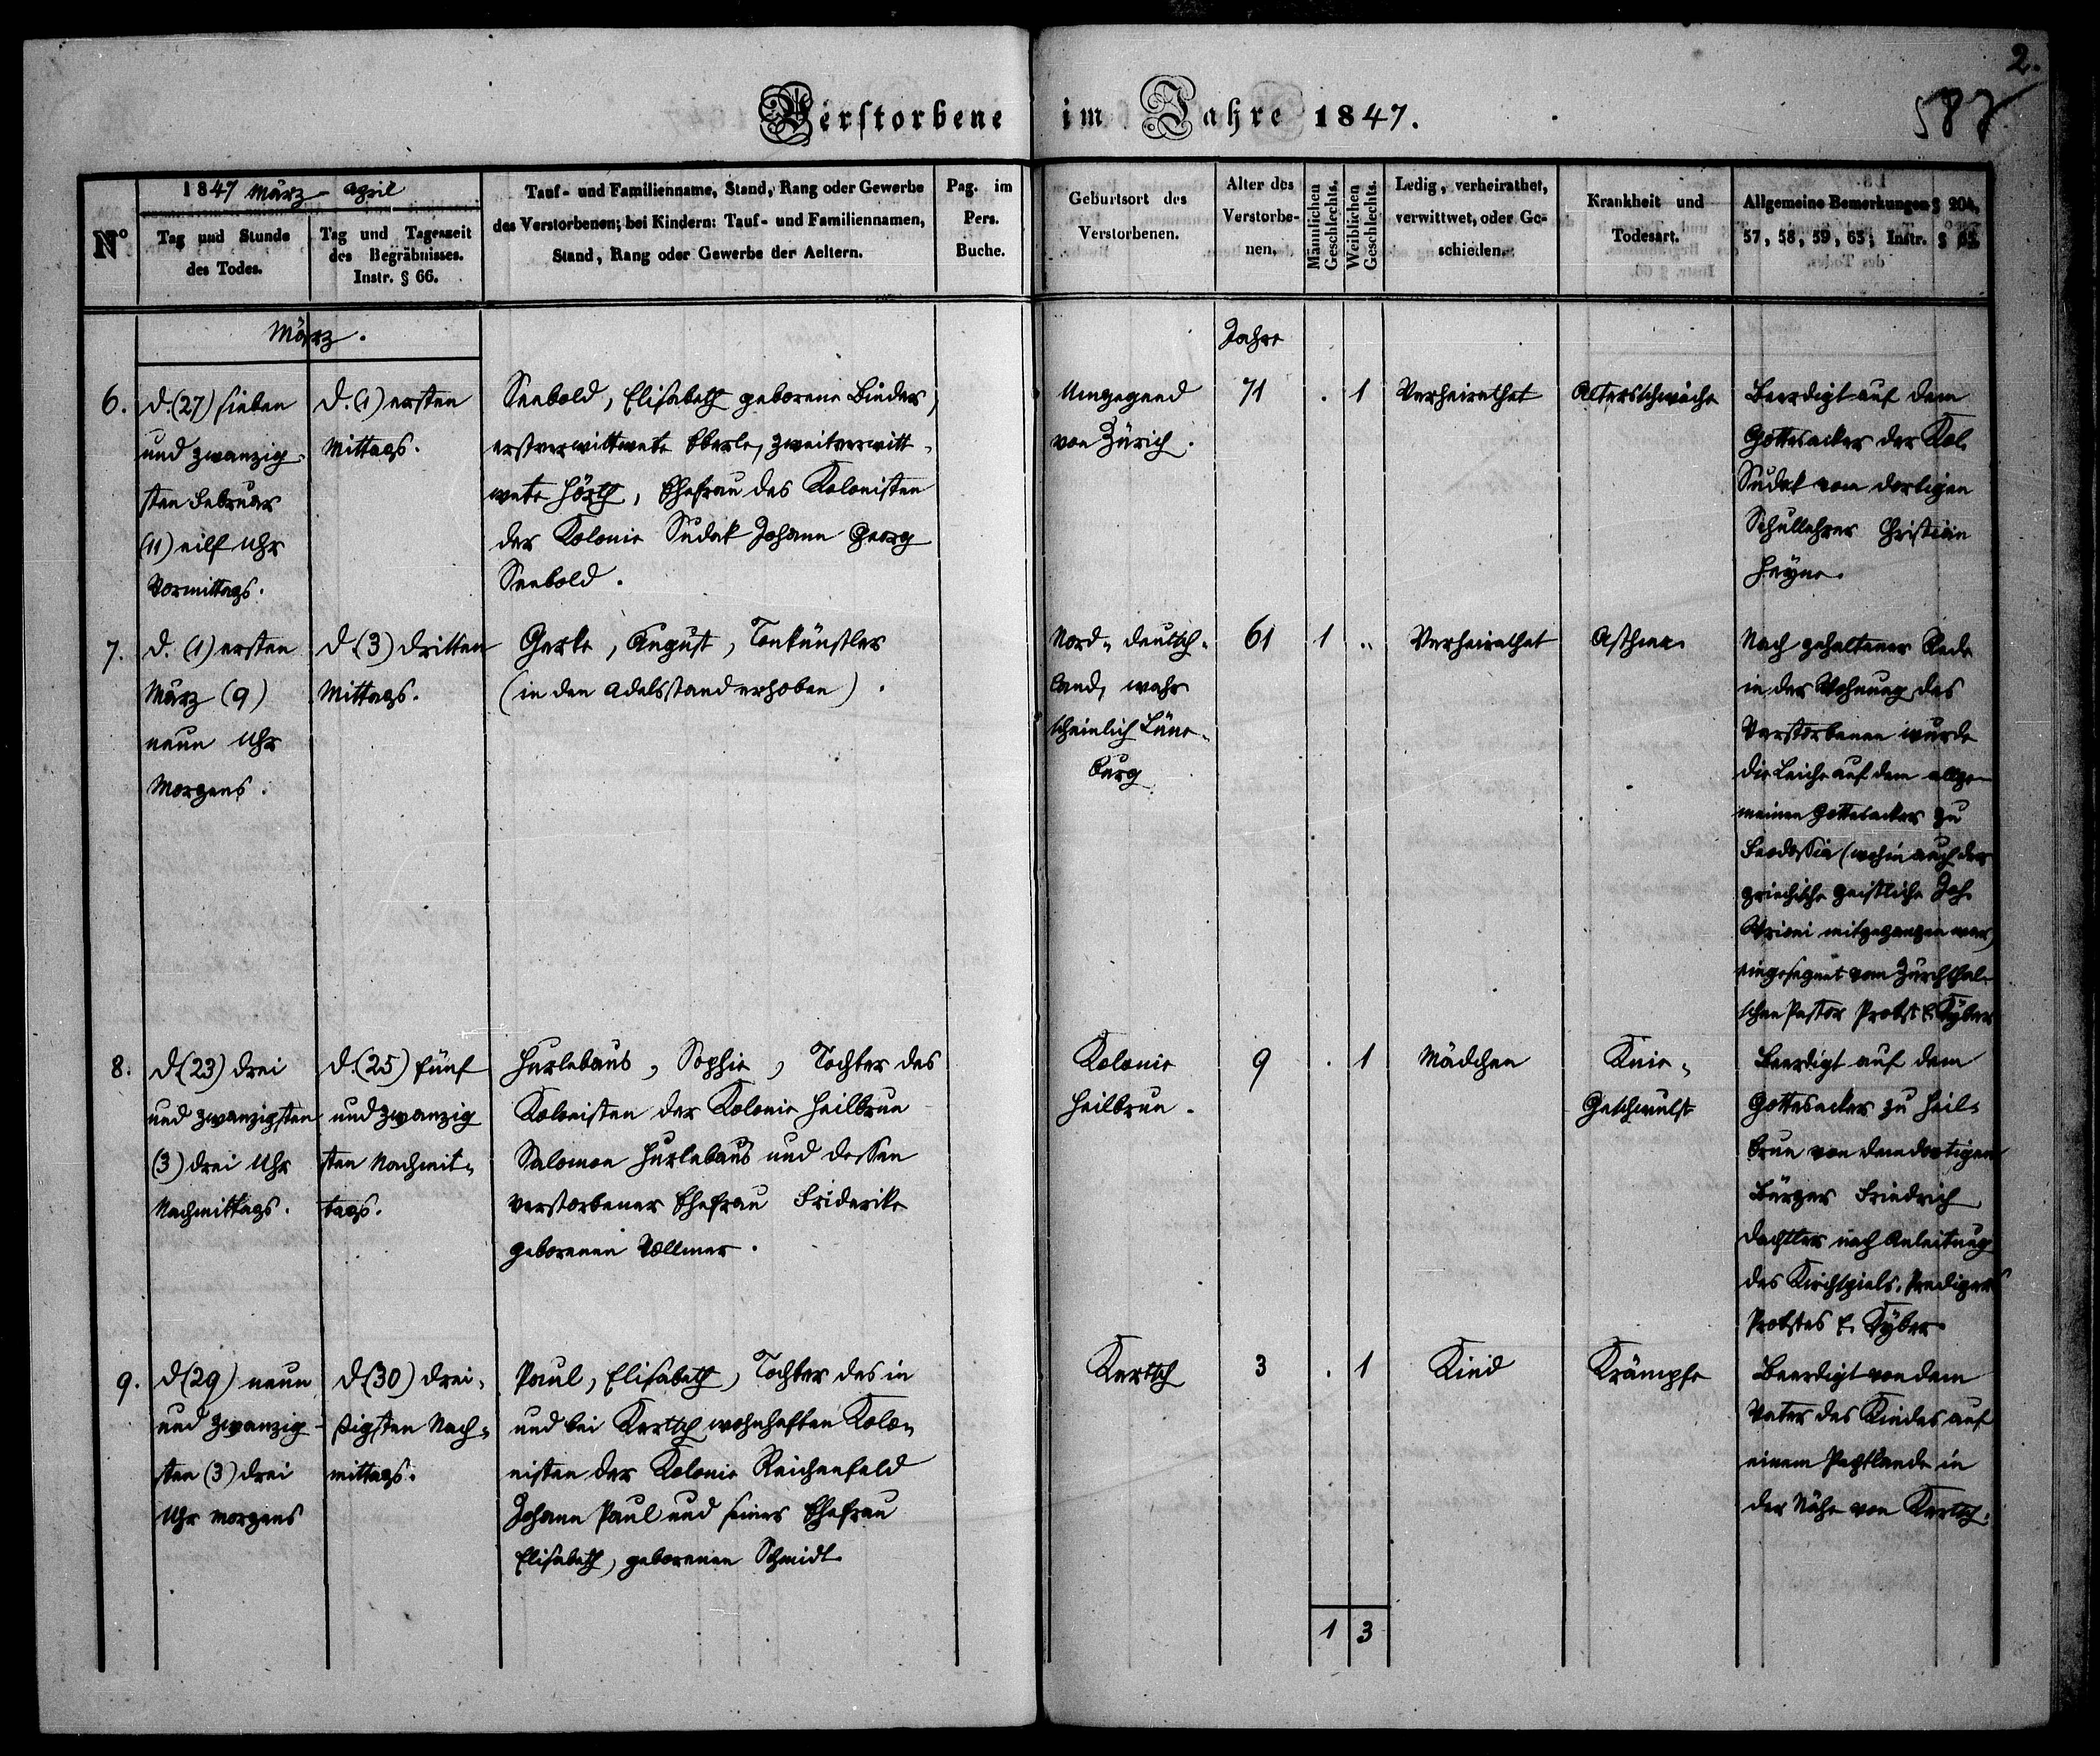 2.
587
Verstorbene im Jahre 1847.
Nº
1847 März - April
Tag und Stunde
des Todes.
Tag und Tageszeit
des Begräbnisses.
Instr. § 66.
Tauf- und Familienname, Stand, Rang oder Gewerbe
des Verstorbenen; bei Kindern: Tauf- und Familiennamen,
Stand, Rang oder Gewerbe der Aeltern.
Pag. im
Pers.
Buche.
Geburtsort des
Verstorbenen.
Alter des
Verstorbe-
nen.
Männlichen
Geschlechts.
Weiblichen
Geschlechts.
Ledig, verheirathet,
verwittwet, oder Ge-
schieden.
Krankheit und
Todesart.
Allgemeine Bemerkungen § 204,
57, 58, 59, 63; Instr. §
März.
Jahre
6.
d. (27) sieben
und zwanzig-
sten Februar
(11) eilf Uhr
Vormittags.
d. (1) ersten
Mittags.
Seebold, Elisabeth geborene Binder,
erstverwittwete Eberle, zweitverwitt-
wete Hörth, Ehefrau des Kolonisten
der Kolonie Sudak Johann Georg
Seebold.
Umgegend
von Zürich.
71
.
1
Verheirathet
Altersschwäche
Beerdigt auf dem
Gottesacker der Kol.
Sudak vom dortigen
Schullehrer Christian
Heyne.
7.
d. (1) ersten
März (9)
neun Uhr
Morgens.
d. (3) dritten
Mittags.
Gerke, August, Tonkünstler
(in den Adelsstand erhoben).
Nord-deutsch-
land, wahr
scheinlich Lüne-
burg
61
1
"
Verheirathet
Asthma
Nach gehaltener Rede
in der Wohnung des
Verstorbenen wurde
die Leiche auf dem allge-
meinen Gottesacker zu
Feodossia (wohin auch der
griechische Geistliche Joh.
mitgegangen war)
eingesegnet vom Zürichthal-
schen Pastor Probst E. Kyber
8.
d. (23) drei
und zwanzigsten
(3) drei Uhr
Nachmittags.
d. (25) fünf
und zwanzig
sten Nachmit-
tags.
Hurlebaus, Sophie, Tochter des
Kolonisten der Kolonie Heilbrun
Salomon Hurlebaus und dessen
verstorbener Ehefrau Friderike
geborenen Vollmer.
Kolonie
Heilbrun.
9
.
1
Mädchen
Knie-
Geschwulst
Beerdigt auf dem
Gottesacker zu Heil-
brun von dem dortigen
Bürger Friedrich
Dachtler nach Anleitung
des Kirchspiels-Predigers
Probstes E. Kyber
9.
d. (29) neun
und zwanzig-
sten (3) drei
Uhr Morgens
d. (30) drei-
ßigsten Nach-
mittags.
Paul, Elisabeth, Tochter des in
und bei Kertsch wohnhaften Kolo-
nisten der Kolonie Reichenfeld
Johann Paul und seiner Ehefrau
Elisabeth, geborenen Schmidt
Kertsch
3
.
1
Kind
Krämpfe
Beerdigt von dem
Vater des Kindes auf
einem Pachtlande in
der Nähe von Kertsch.
1
3